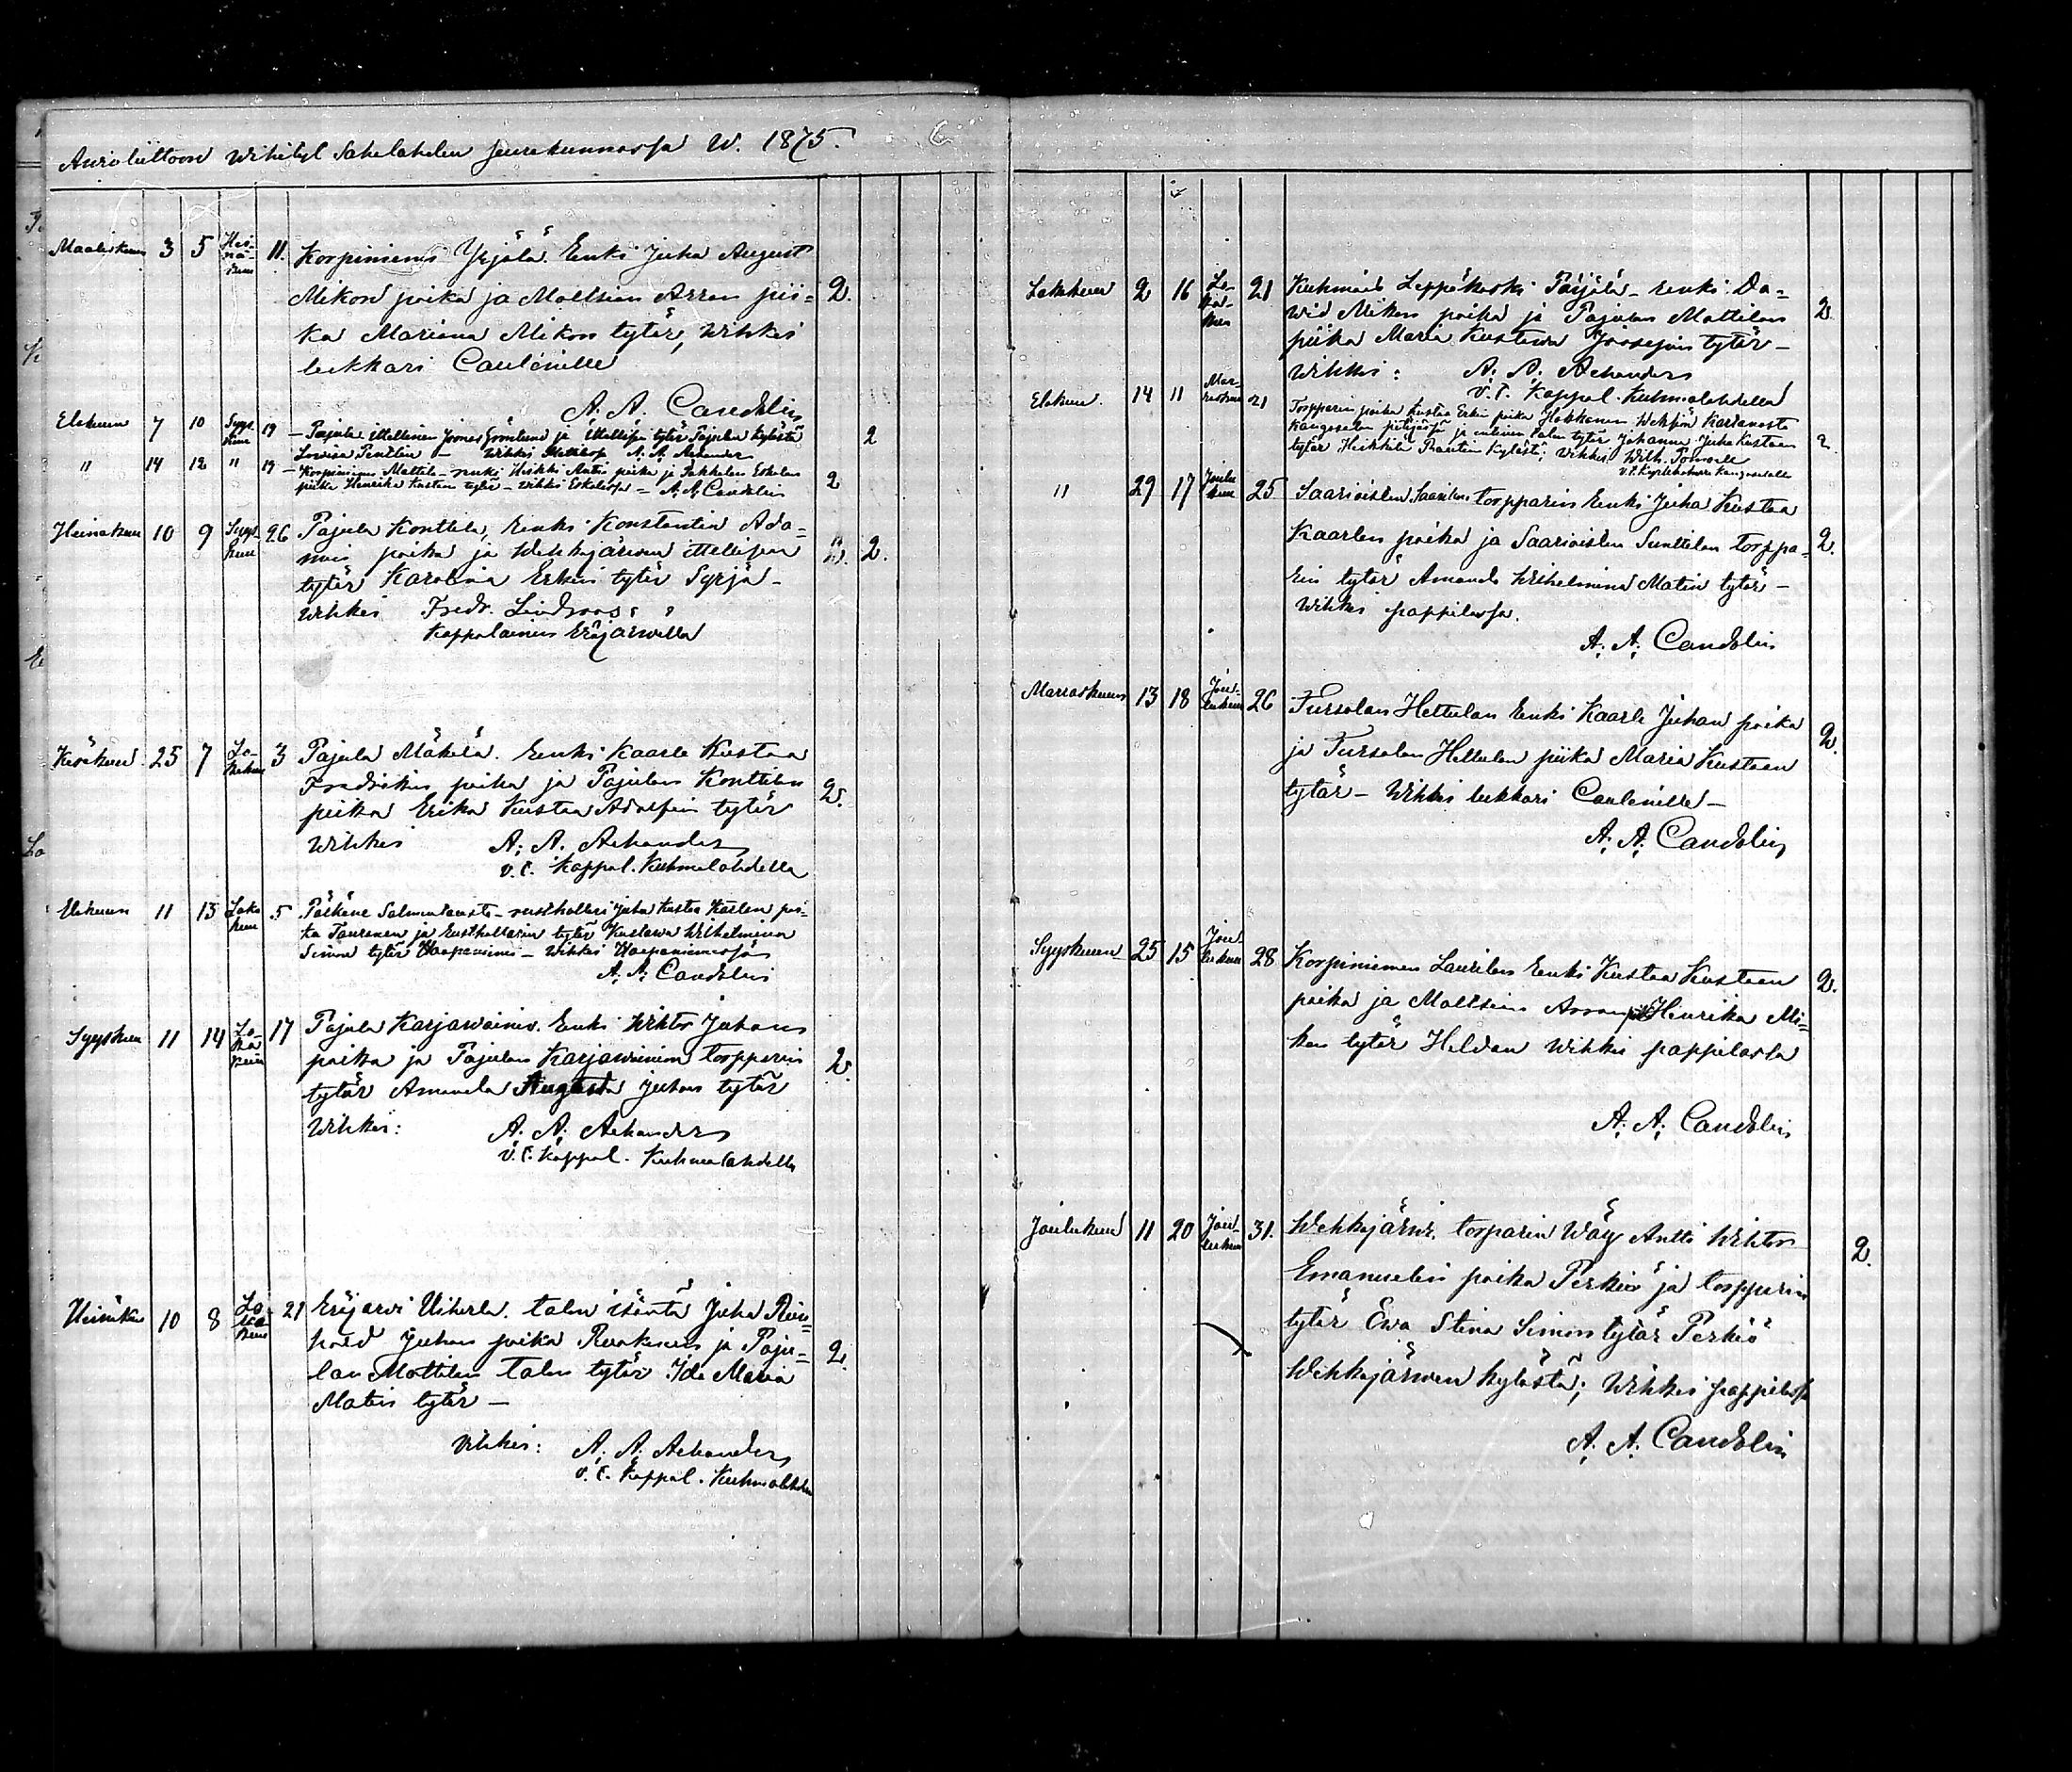 Awioliittoon wihityt Sahalahden seurakunnassa w. 1875.
Maaliskuun 3 5 Hei-nä-kuun 11. Korpiniemi Yrjölä. Renki Juha August
Mikon poika ja Moltsian Arran pii= 2.
ka Mariana Mikon tytär, Wihki
lukkari
A. A. Candolin
Elokuun 7 10 Syys kuun 19 – Pajula ittellinen Joonas Grönlund ja ittellisen tytär Pajulan kylästä 2
Lowisa – Wihki A. A. Achander
" 14 12 " 19 – Korpiniemi Mattila – renki Heikki Antin poika ja Pakkalan Eskolan 2
piika Henrika Kustaan tytär – Wihki Eskolassa – A. A. Candolin
Heinäkuun 10 9 Syys kuun 26 Pajula Konttila, Renki Konstantin Ada=
min poika ja Wehkajärwen ittellisen 2.
tytär Karolina Erkin tytär Syrjä –
Wihki Fredr. Lindroos
Kappalainen Eräjärwellä
Kesäkuun 25 7 Lo-kakuun 3 Pajula Mäkelä. Renki Kaarle Kustaa
Fredrikin poika ja Pajulan Konttilan
piika Erika Kustaa Adolfin tytär 2.
Wihki A. A. Achander
v.t. Kappal. Kuhmalahdella
Elokuun 11 13 Loka kuun 5 Pälkäne Salmentausta – rusthollari Juha Kustaa Kaarlen poi-
ka Tauronen ja Rusthollarin tytär Kustawa Wilhelmina
Simon tytär Haapaniemi – Wihki Haapaniemessä
A. A. Candolin
Syyskuun 11 14 Lo-ka-kuun 17 Pajula Karjawainio. Renki Wihtor Juhan
poika ja Pajulan Karjawainion torpparin 2.
tytär Amanda Augusta Juhan tytär
Wihki: A. A. Achander
v.t. Kappal. Kuhmalahdella
Heinäkuun 10 8 Lo ka kuun 21 Eräjärwi Uiherla. talon isäntä Juha Rein=
hold Juhan poika ja Paju=
lan Mattilan talon tytär Ida Maria 2.
Matin tytär –
Wihki: A. A. Achander
v.t. Kappal. Kuhmalahdella
Lokakuun 2 16 Lo-ka-kuun 21 Kuhmalahti Leppäkoski Päijälä – renki Da=
wid Mikon poika ja Pajulan Mattilan 2
piika Maria Kustawa Joosepin tytär –
Wihki: A. A. Achander
v.t. Kappal. Kuhmalahdella
Elokuun 14 11 Mar-raskuun 21 Torpparin poika Kustaa Erkin poika
Kangasalan pitäjästä ja entisen talon tytär Johanna Juha Kustaan 2
tytär Heikkilä kylästä; Wihki Wilh.
Kangasalla
" 29 17 Joulu kuun 25 Saarioisten torpparin Renki Juha Kustaa
Kaarlen poika ja Saarioisten Sunttilan torppa= 2.
rin tytär Amanda Wilhelmina Matin tytär –
Wihki pappilassa.
A. A. Candolin
Marraskuun 13 18 Jou-lukuun 26 Tursolan Hettulan Renki Kaarle Juhan poika
ja Tursolan Hettulan piika Maria Kustaan 2.
tytär – Wihki lukkari
A. A. Candolin
Syyskuun 25 15 Jou-lukuun 28 Korpiniemen Laurilan Renki Kustaa Kustaan 2.
poika ja Moltsian Arran Henrika Mi=
kon tytär Wihki pappilassa
A. A. Candolin
Joulukuun 11 20 Jou-lukuun 31. Wehkajärwi. torparin Wäy Antti Wihtor 2.
Emanuelin poika Perkiö ja torpparin
tytär Ewa Stina Simon tytär Perkiö
Wehkajärwen kylästä; Wihki pappilassa
A. A. Candolin